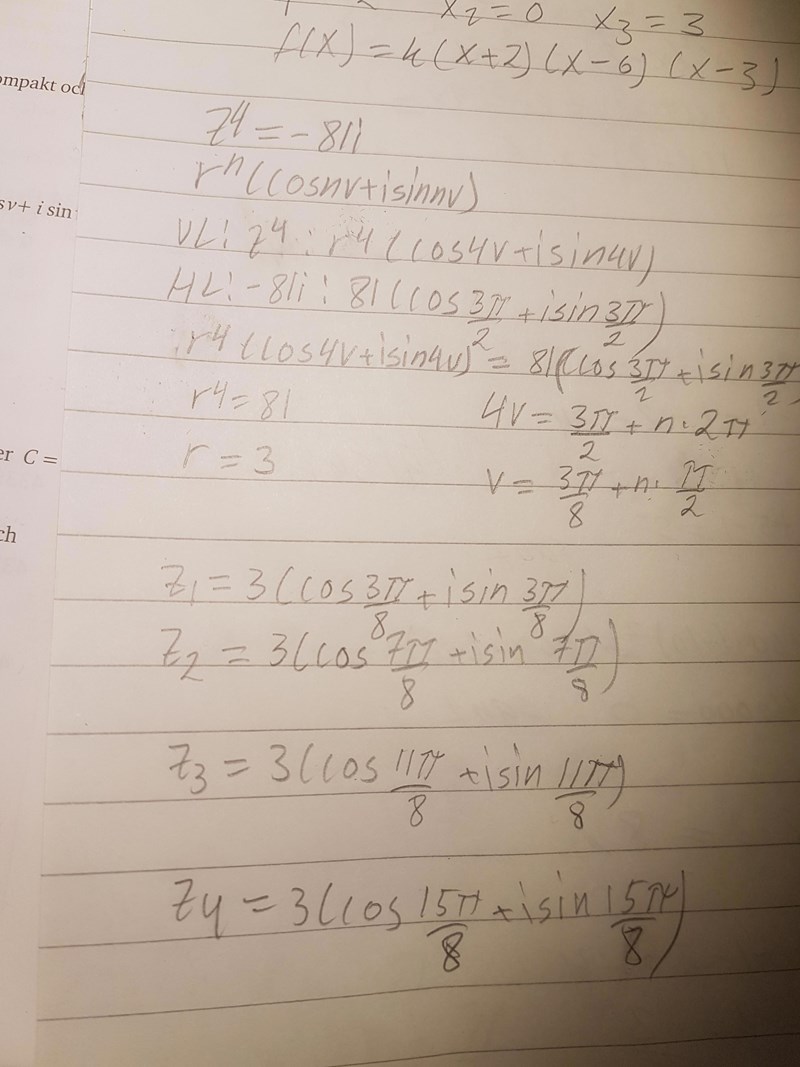 x₂ = 0 x₃ = 3
f(x) = k(x+2)(x-6)(x-3)
ompakt och
z⁴ = -81i
rⁿ(cosnv+isinnv)
s v + i sin
VL: z⁴ : r⁴(cos4v+isin4v)
HL: -81i : 81(cos 3π/2 + isin 3π/2)
r⁴(cos4v+isin4v) = 81(cos 3π/2 + isin 3π/2)
r⁴ = 81 4v = 3π/2 + n·2π
er C =
r = 3 v = 3π/8 + n·π/2
ch
z₁ = 3(cos 3π/8 + isin 3π/8)
z₂ = 3(cos 7π/8 + isin 7π/8)
z₃ = 3(cos 11π/8 + isin 11π/8)
z4 = 3(cos 15π/8 + isin 15π/8)